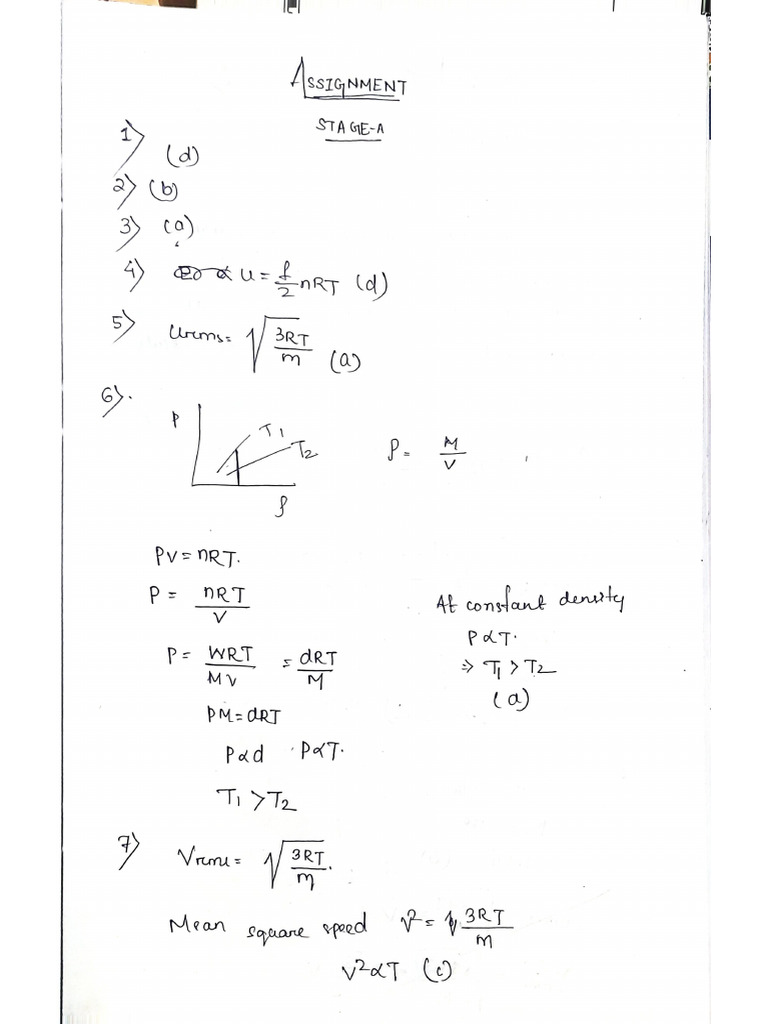 ASSIGNMENT
STAGE-A
1) (d)
2) (b)
3) (a)
4) U = f/2 nRT (d)
5) Urms = √(3RT/m) (a)
6).
P T1 T2 ρ
ρ = M/V
PV = nRT.
P = nRT/V
P = WRT/MV = dRT/M
PM = dRT
P∝d P∝T.
T1 > T2
At constant density
P∝T.
⇒ T1 > T2
(a)
7) Vrms = √(3RT/m).
Mean square speed v² = 3RT/m
v²∝T (c)